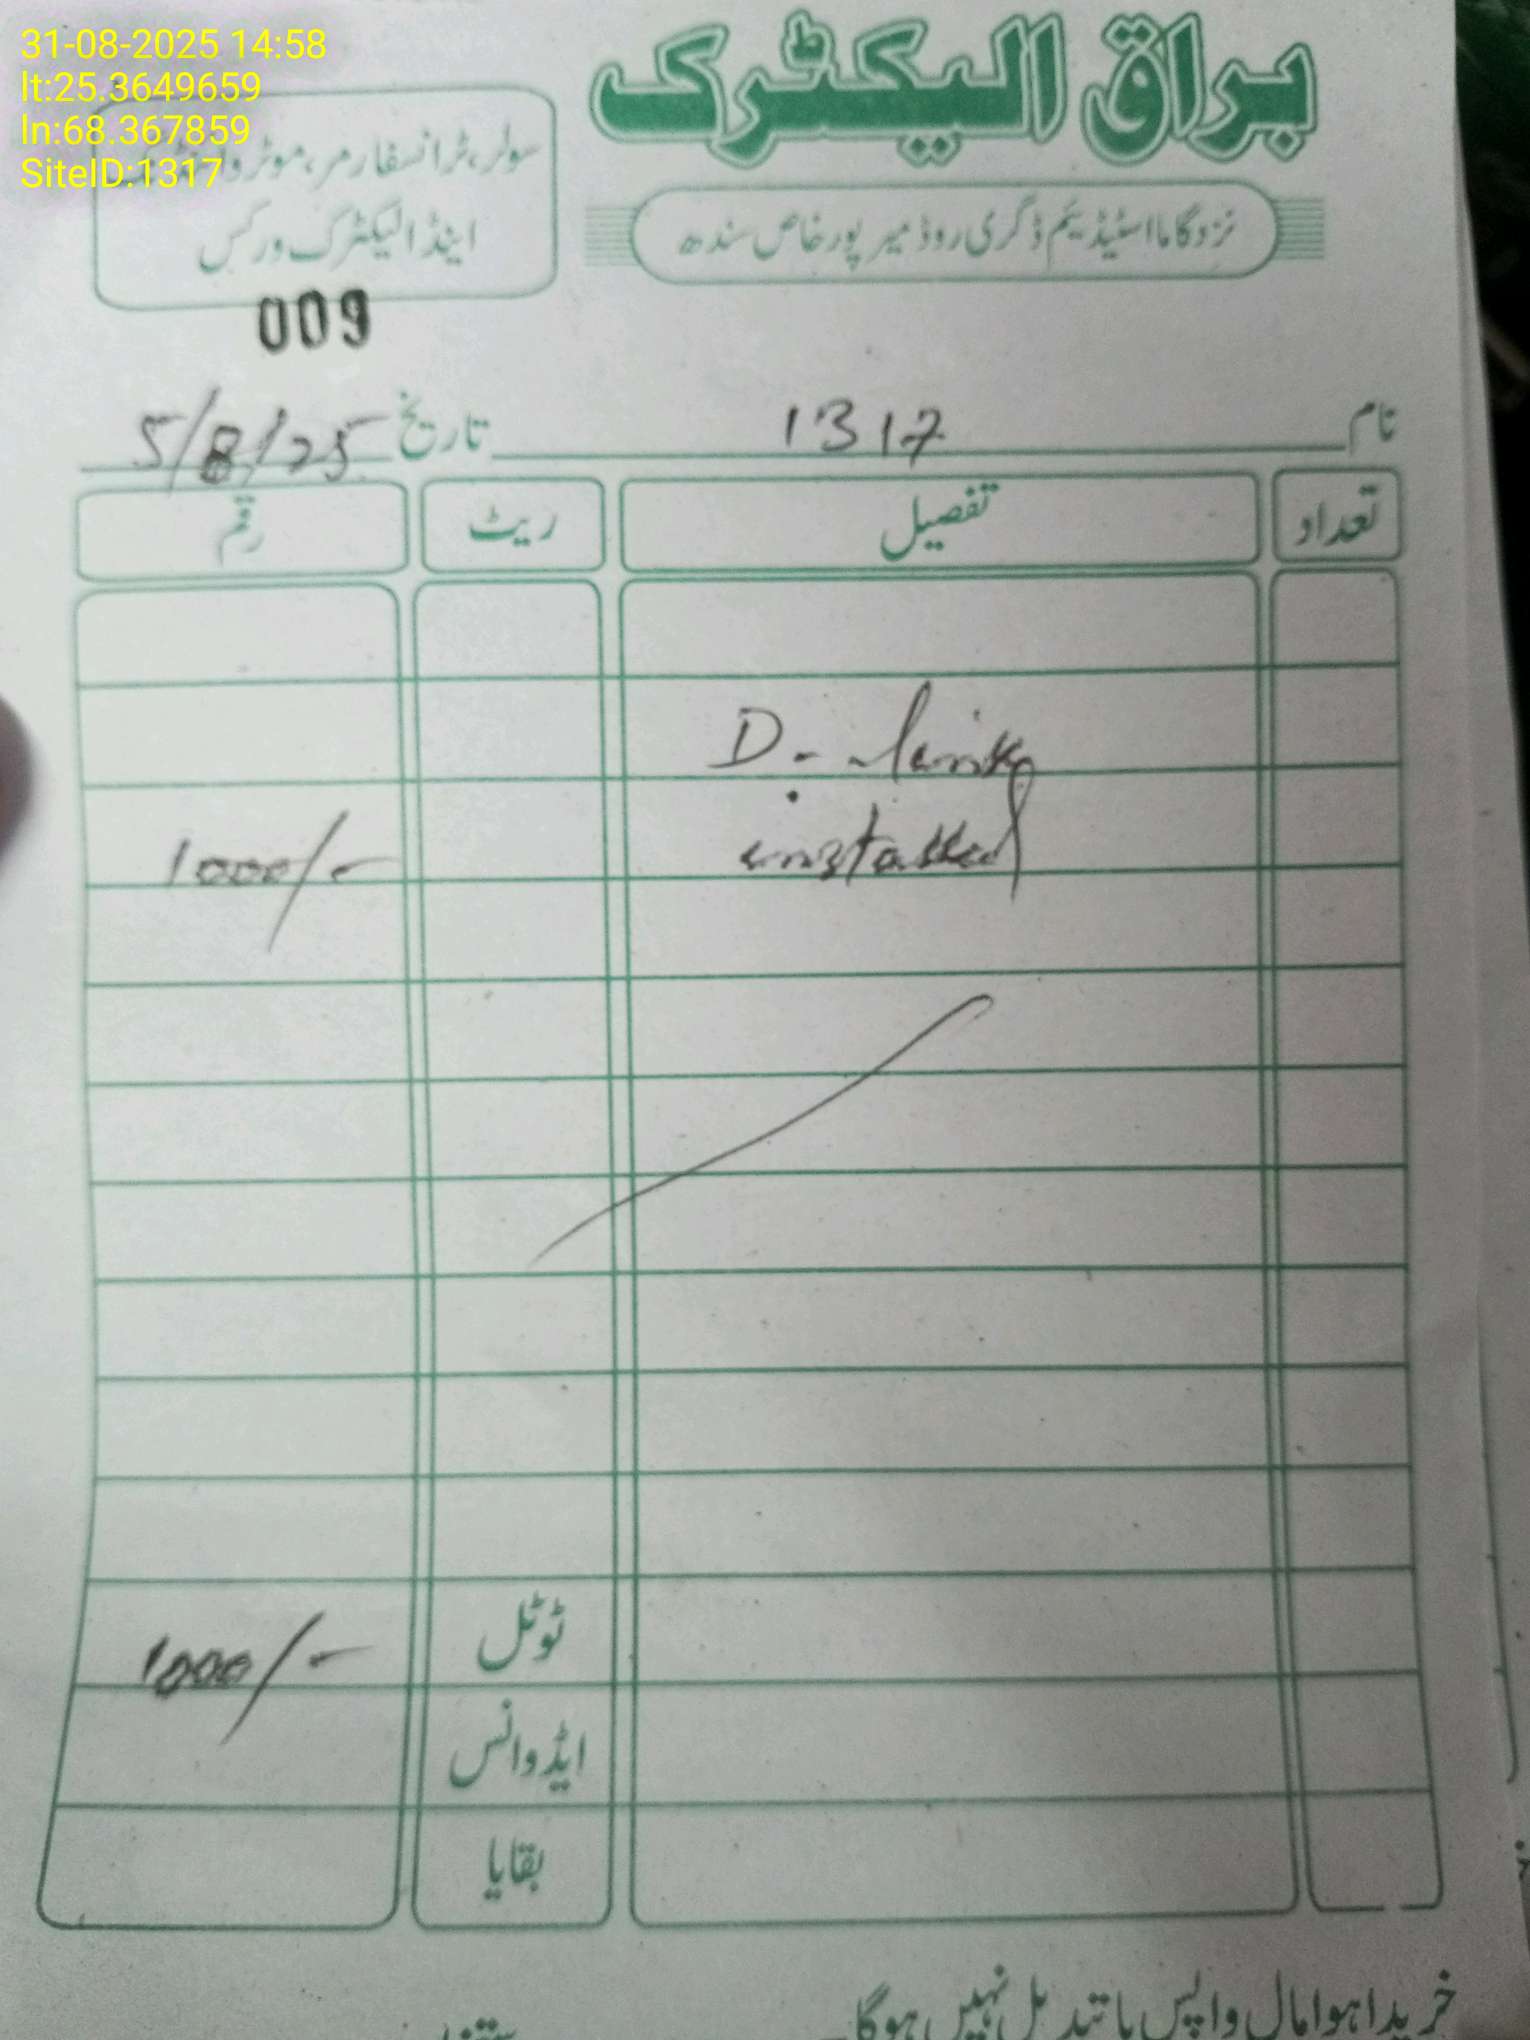 31-08-2025 14:58
lt:25.3649659
ln:68.367859
SiteID:1317
براق الیکٹرک
سولر، ٹرانسفارمر، موٹر
اینڈ الیکٹرک ورکس
نزد گاما اسٹیڈیم ڈگری روڈ میرپورخاص سندھ
009
نام 1317 تاریخ 5/8/25
تعداد تفصیل ریٹ رقم
D.
installed 1000/-
ٹوٹل 1000/-
ایڈوانس
بقایا
خریدا ہوا مال واپس یا تبدیل نہیں ہوگا